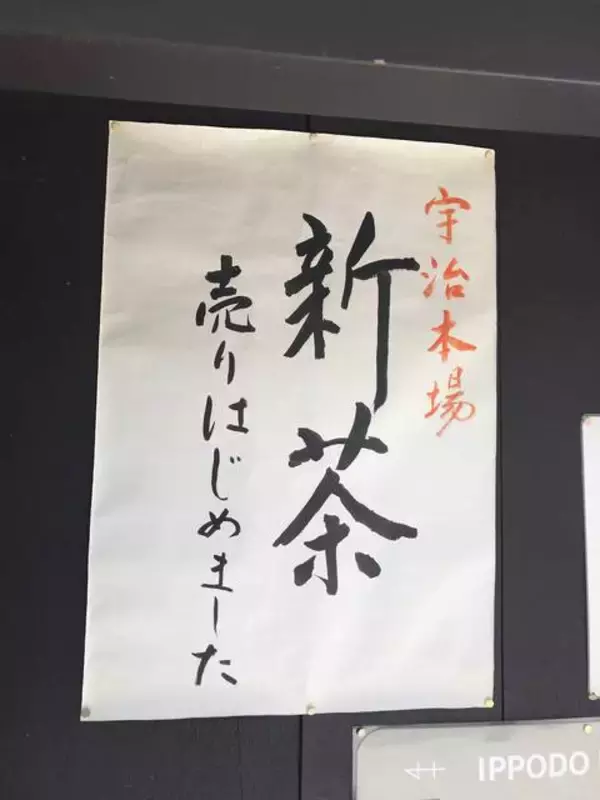 宇治本場
新茶
売りはじめました
IPPODO